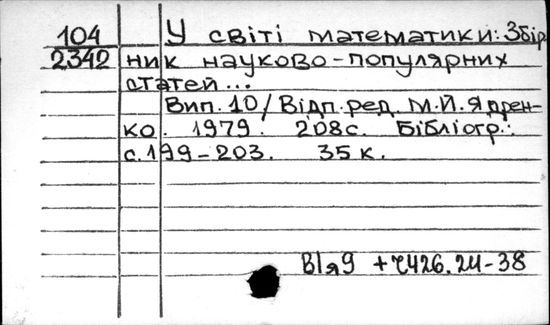 104 У світі математики: Збір
2342 ник науково-популярних
статей...
Вип. 10/Відп. ред. М.Й. Ядрен-
ко. 1979. 208с. Бібліогр.:
с. 199-203. 35 к.
В1я9 +Ч426.24-38